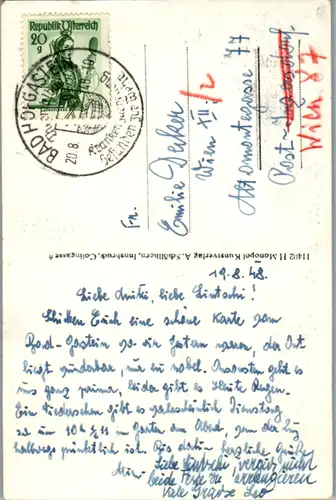 Republik Österreich
20
g
BAD HOFGASTEIN
20.8.
Fr.
Emilie Deker
Wien XII/2
77
Post
Wien 87
11402 H Monopol Kunstverlag A. Schöllhorn, Innsbruck, Colingasse
19.8.48.
Liebe Mutti, liebe Lintschi!
Schicken Euch eine schöne Karte vom
Bad-Gastein wo wir gestern waren der Ort
liegt wunderbar, nur zu nobel. Ansonsten geht es
uns ganz prima, leider gibt es heute Regen.
Ein Wiedersehen gibt es wahrscheinlich Dienstag
so um 10h am Abend, wenn der Zug
halbwegs pünktlich ist. Bis dahin herzliche Grüße
Liebe Lintschi, vergiss nicht
beide Feste zu arrangieren
Viele Grüsse Leo